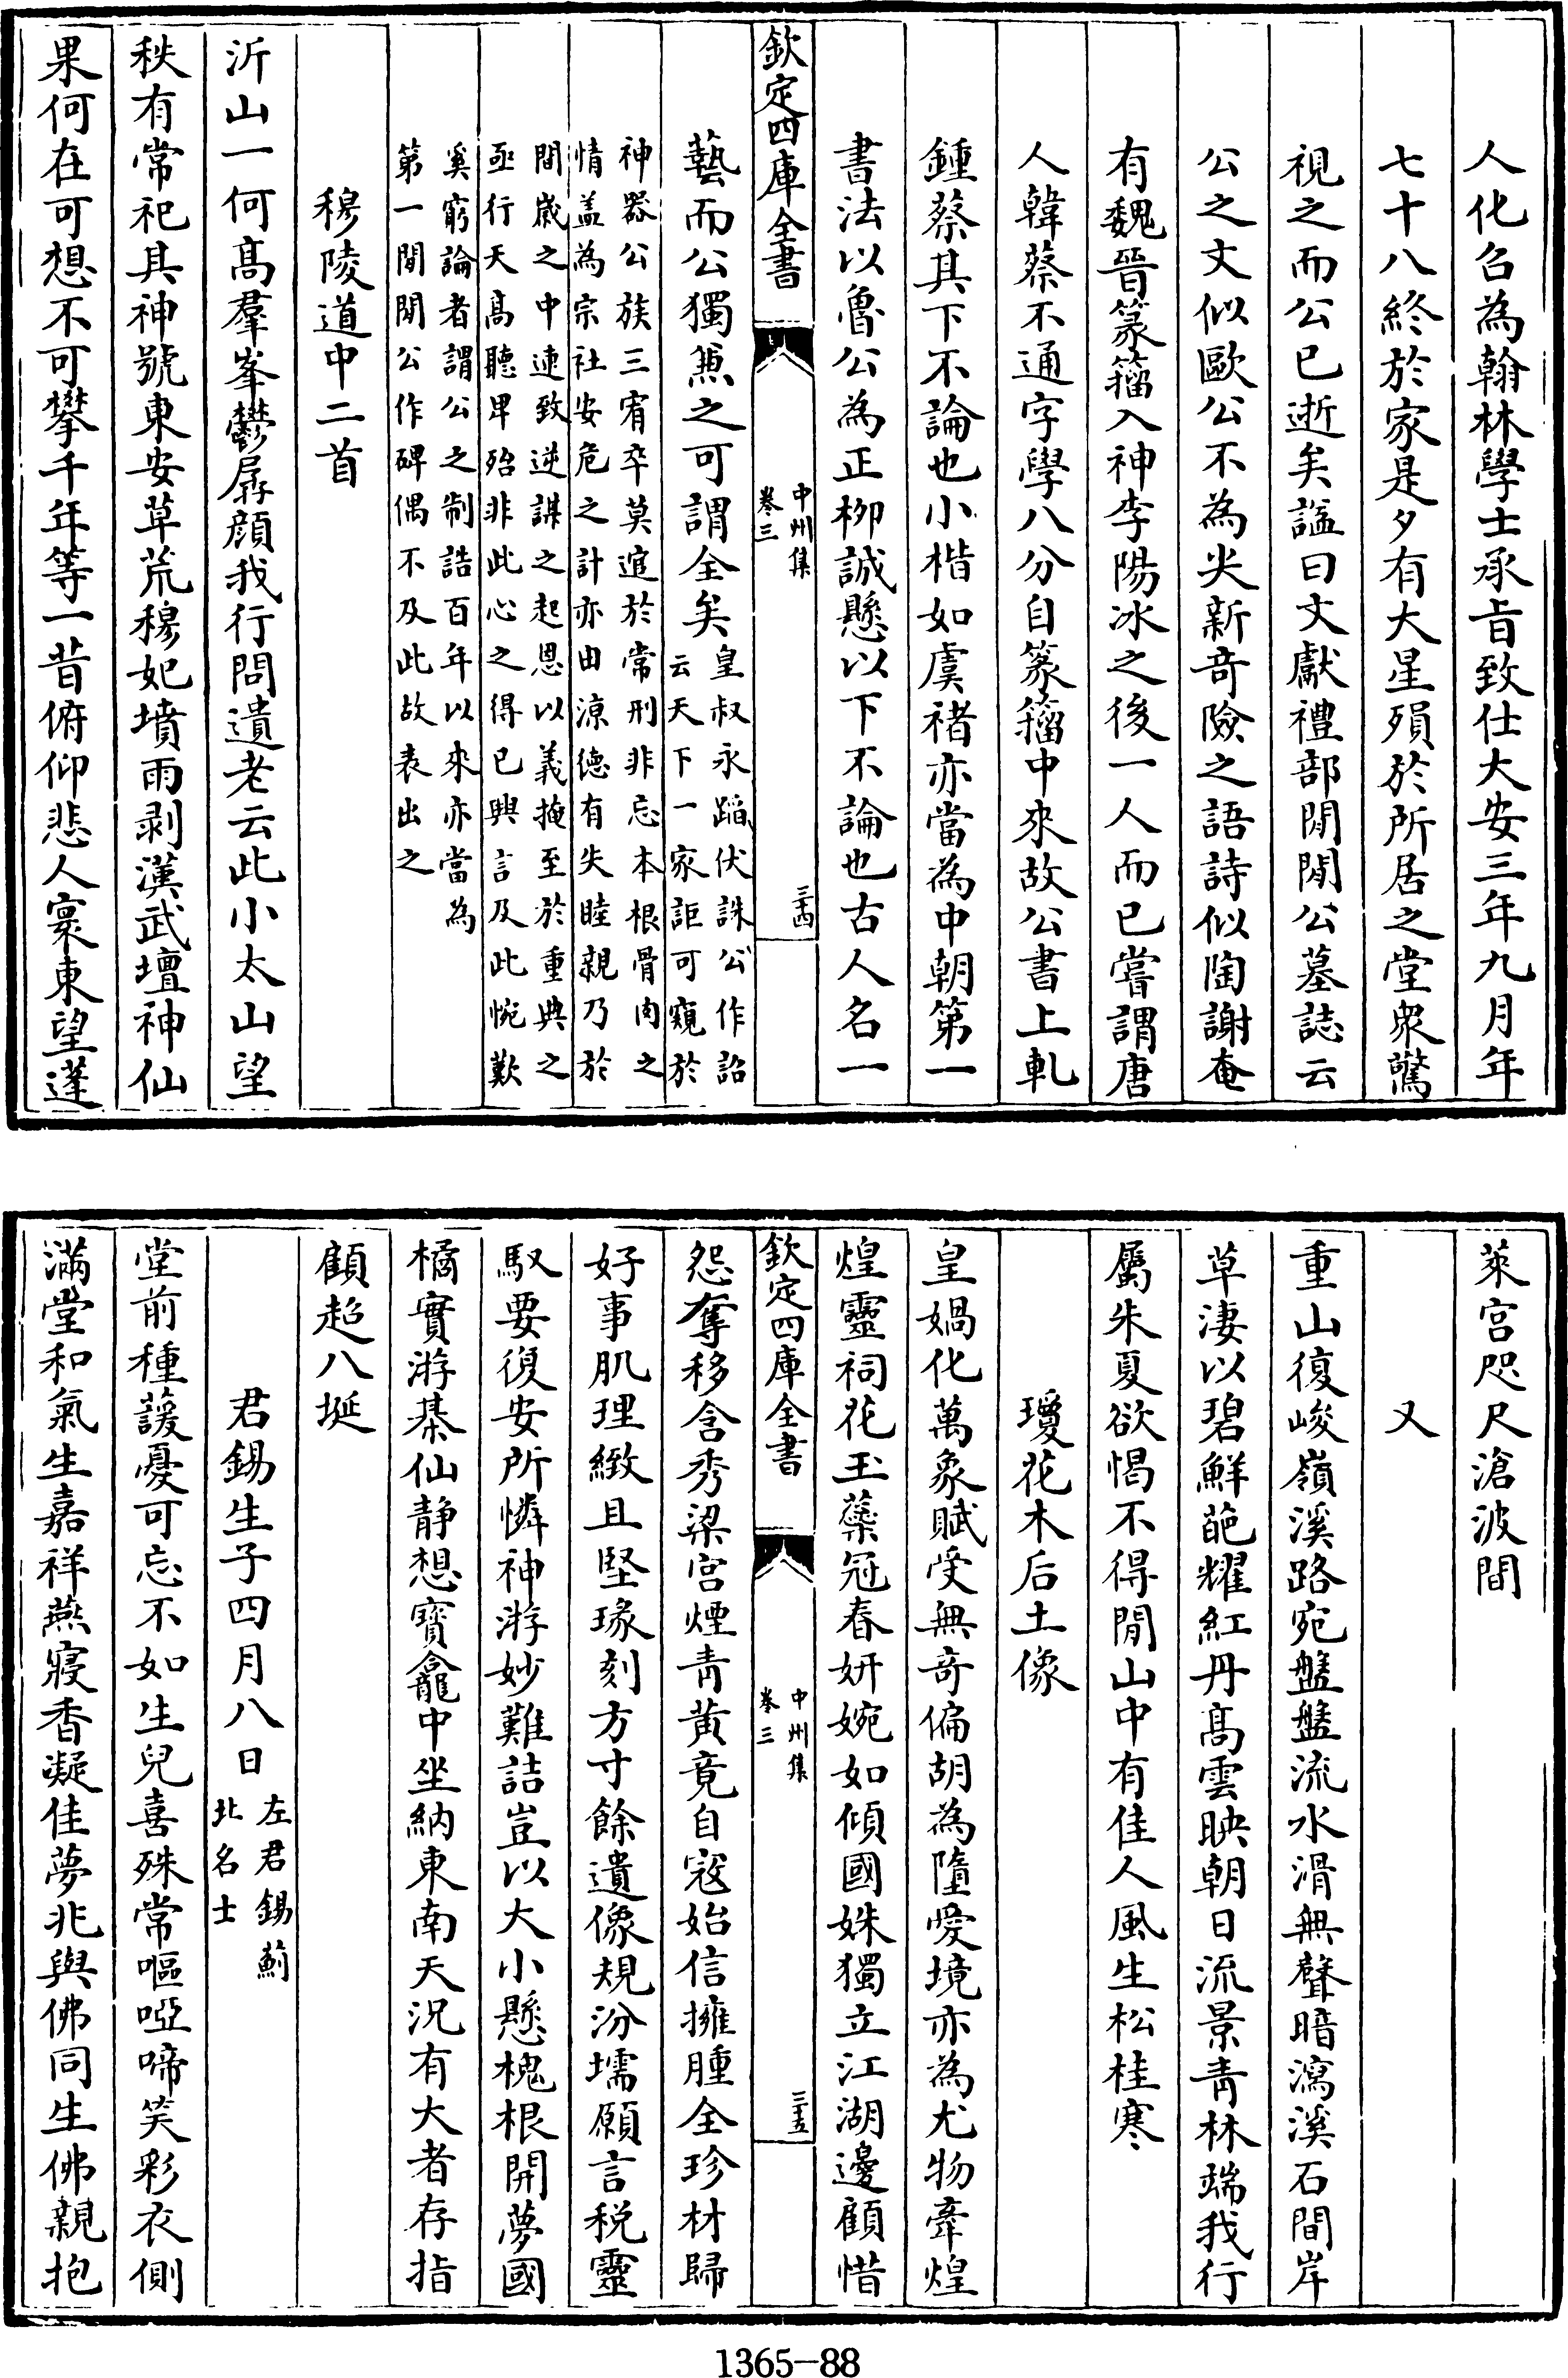 人化召為翰林學士承旨致仕大安三年九月年
七十八終於家是夕有大星殞於所居之堂衆驚
視之而公已逝矣諡曰文獻禮部閒閒公墓誌云
公之文似歐公不為尖新奇險之語詩似陶謝奄
有魏晉篆籀入神李陽冰之後一人而已嘗謂唐
人韓蔡不通字學八分自篆籀中來故公書上軋
鍾蔡其下不論也小楷如虞褚亦當為中朝第一
書法以魯公為正柳誠懸以下不論也古人名一
欽定四庫全書
中州集
卷三
三十四
藝而公獨兼之可謂全矣
皇叔永蹈伏誅公作詔
云天下一家詎可窺於
神器公族三宥卒莫逭於常刑非忘本根骨肉之
情盖為宗社安危之計亦由涼徳有失睦親乃於
間歲之中連致逆謀之起恩以義掩至於重典之
亟行天髙聽卑殆非此心之得已興言及此惋歎
奚窮論者謂公之制誥百年以來亦當為
第一閒閒公作碑偶不及此故表出之
穆陵道中二首
沂山一何髙羣峯鬱孱顔我行問遺老云此小太山望
秩有常祀其神號東安草荒穆妃墳雨剥漢武壇神仙
果何在可想不可攀千年等一昔俯仰悲人寰東望蓬
萊宫咫尺滄波間
又
重山復峻嶺溪路宛盤盤流水滑無聲暗瀉溪石間岸
草淒以碧鮮葩耀紅丹髙雲映朝日流景青林端我行
屬朱夏欲愒不得閒山中有佳人風生松桂寒
瓊花木后土像
皇媧化萬象賦受無奇偏胡為墮愛境亦為尤物牽煌
煌靈祠花玉蘂冠春妍婉如傾國姝獨立江湖邊顧惜
欽定四庫全書
中州集
卷三
三十五
怨奪移含秀梁宫煙青黄竟自寇始信擁腫全珍材歸
好事肌理緻且堅瑑刻方寸餘遺像規汾壖願言税靈
馭要復安所憐神游妙難詰豈以大小懸槐根開夢國
橘實游棊仙静想寳龕中坐納東南天況有大者存指
顧超八埏
君錫生子四月八日
左君錫薊
北名士
堂前種諼憂可忘不如生兒喜殊常嘔啞啼笑彩衣側
滿堂和氣生嘉祥燕寢香凝佳夢兆與佛同生佛親抱
1365-88